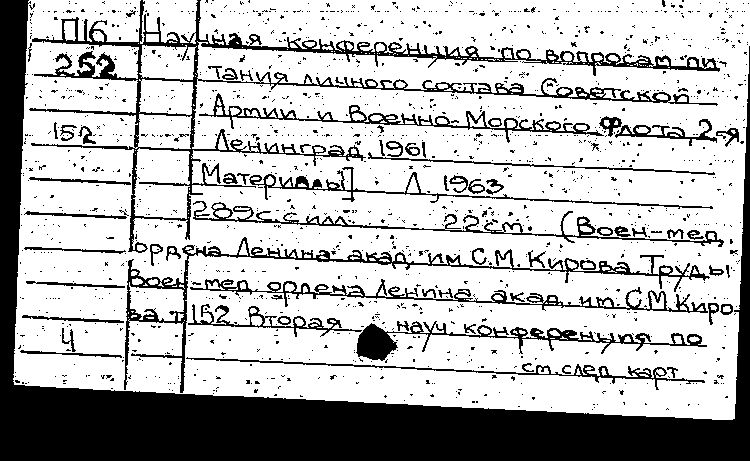 П16 Научная конференция по вопросам пи-
252 тания личного состава Советской
Армии и Военно-Морского Флота, 2-я.
152 Ленинград. 1961.
[Материалы]. Л., 1963
289с. с илл. 22см. (Воен-мед.
ордена Ленина акад. им С.М. Кирова. Труды
Воен-мед. ордена Ленина акад. им. С.М. Киро-
ва. т. 152. Вторая науч. конференция по
4 см. след. карт.